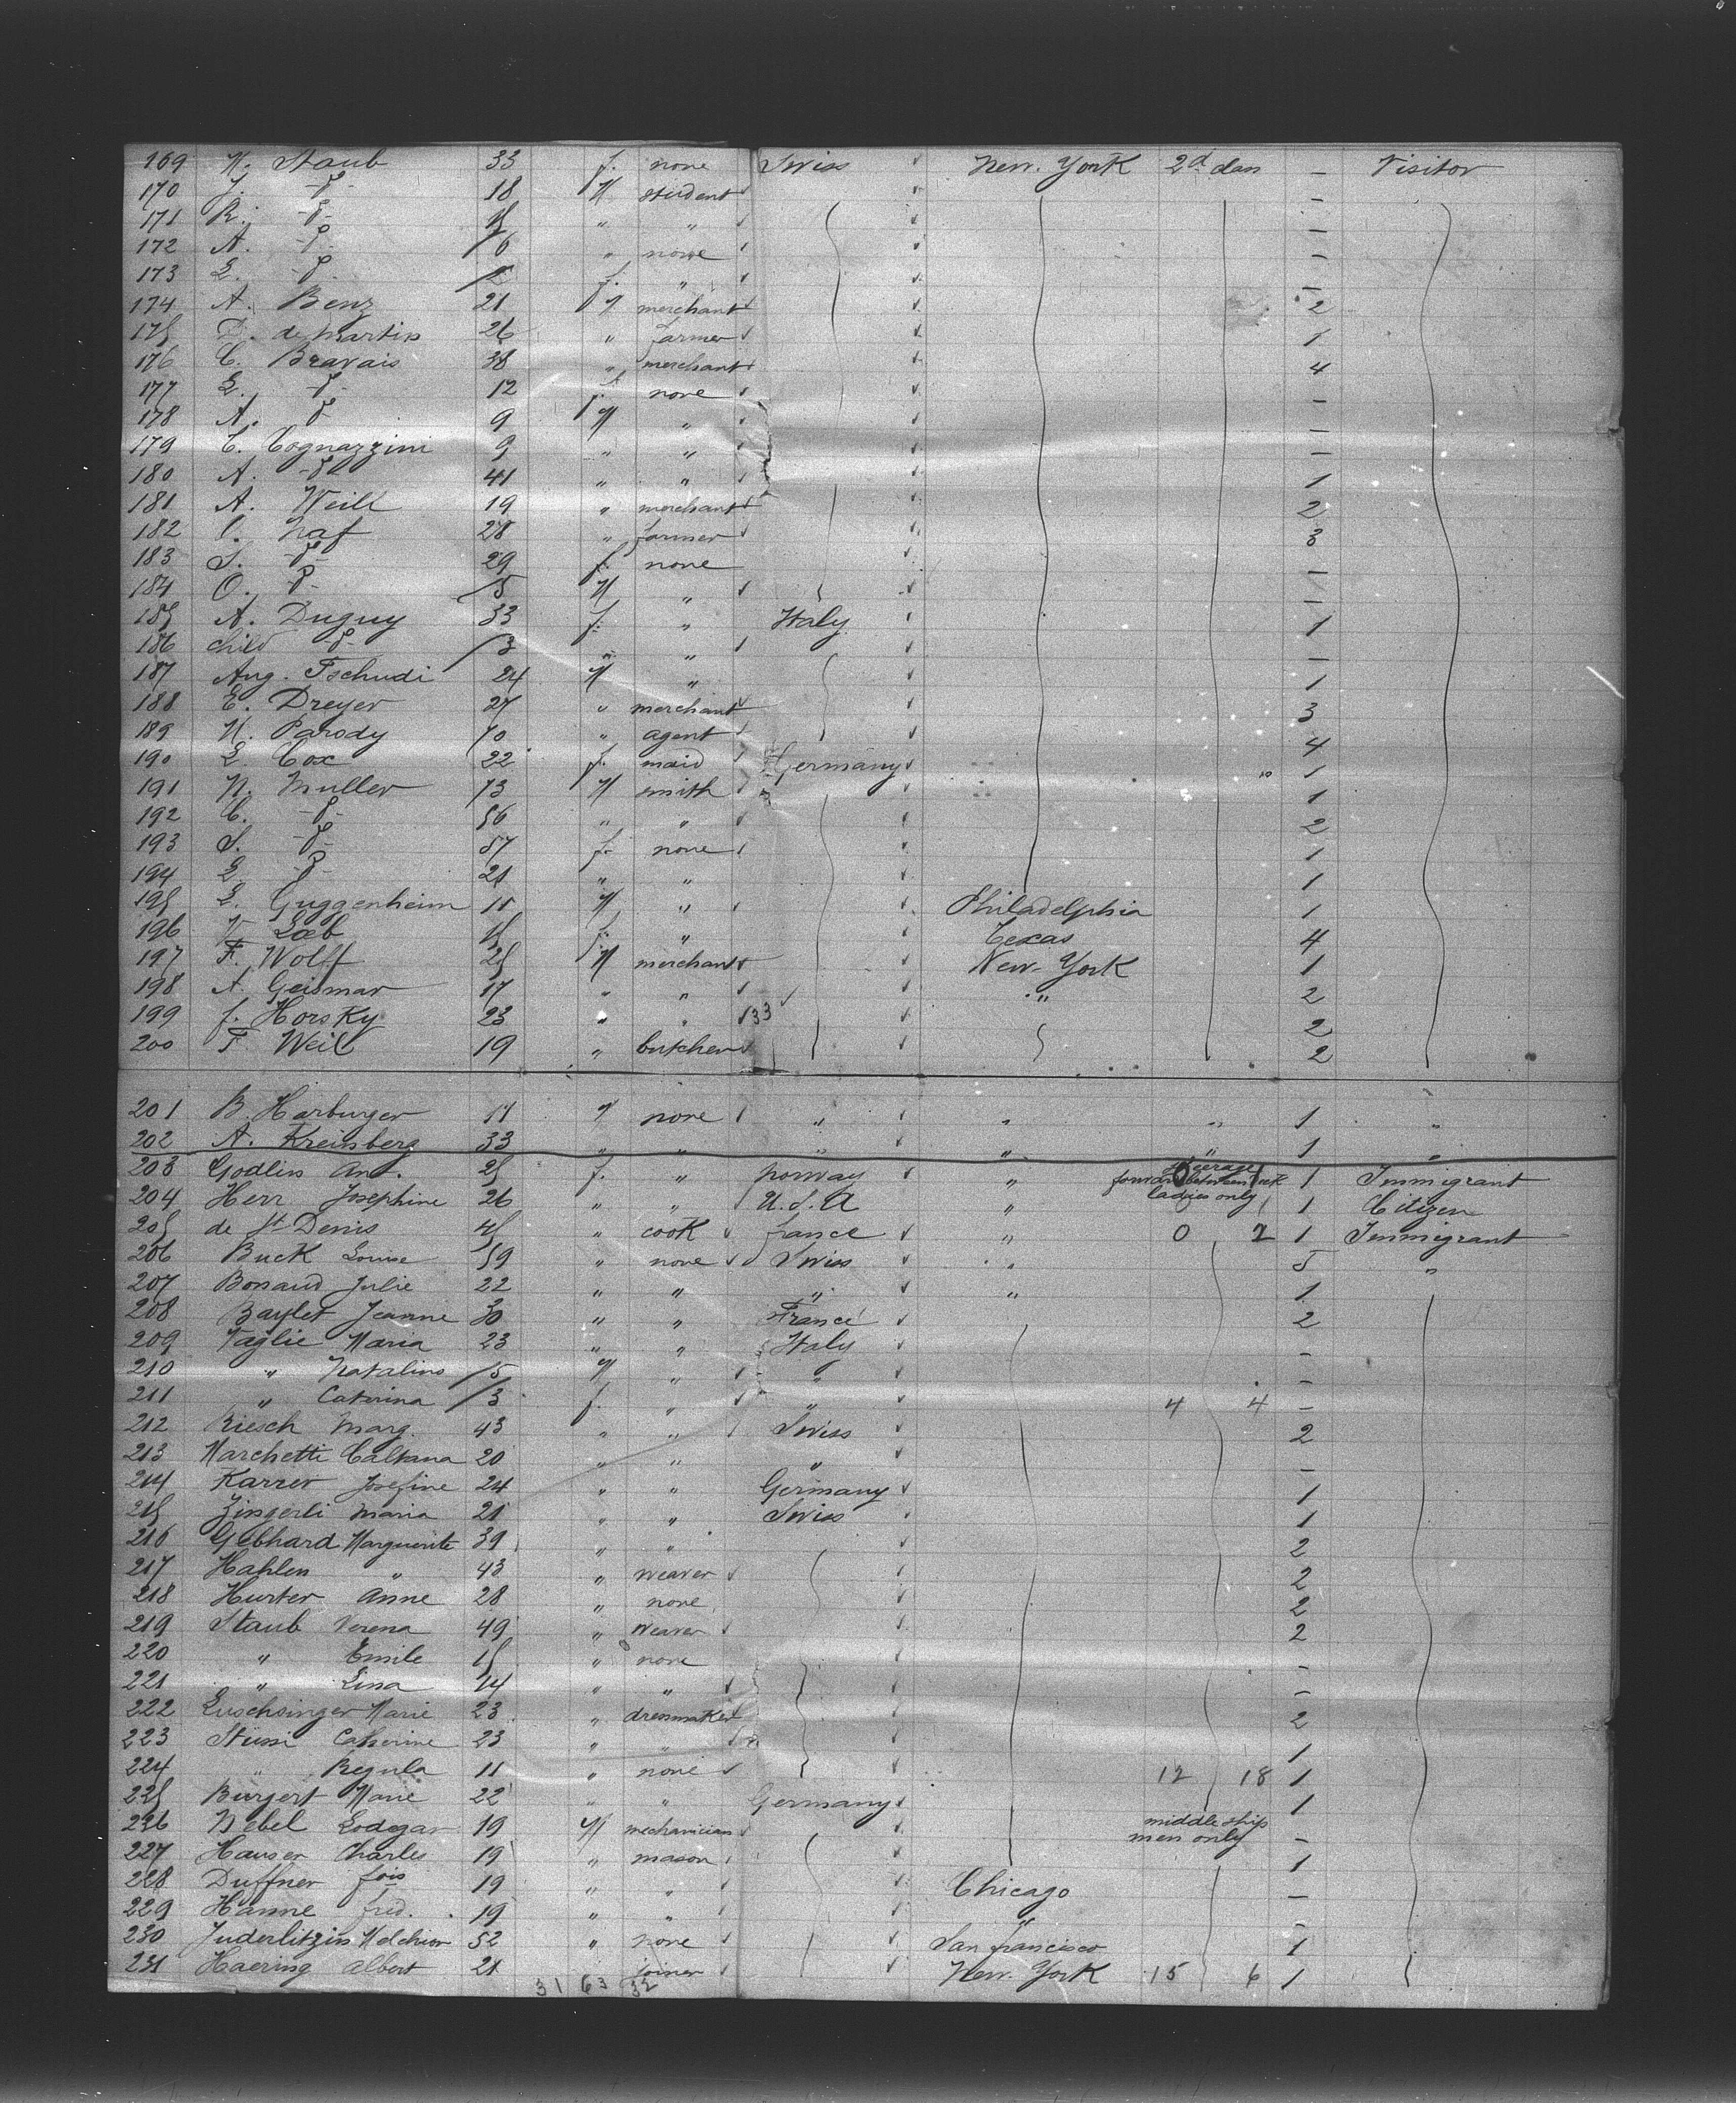 169 M. Staub 33 f. none Swiss New. York 2d clas – Visitor
170 J. -d°- 18 M student –
171 R. -d°- 15 " " –
172 A. -d°- 6 " none –
173 E. -d°- 2 f. " –
174 A. Benz 21 M merchant 2
175 D. de Martin 26 " farmer 1
176 C. Bravais 38 " merchant 4
177 E. -d°- 12 f. none –
178 A. -d°- 9 M " –
179 C. Cognazzini 9 " " –
180 A. -d°- 41 " " 1
181 A. Weill 19 " merchant 2
182 C. Naf 28 " farmer 3
183 S. -d°- 29 f. none –
184 O. -d°- 5 M " –
185 A. Duguy 33 f. " Italy 1
186 child -d°- 3 " " –
187 Aug. Tschudi 24 M " 1
188 E. Dreyer 27 " merchant 3
189 M. Parody 40 " agent 4
190 E. Cox 22 f. maid Germany " 1
191 N. Muller 73 M smith 1
192 C. -d°- 56 " " 2
193 S. -d°- 57 f. none 1
194 E. -d°- 21 " " 1
195 E. Guggenheim 11 M " Philadelphia 1
196 Loeb 15 f. " Texas 4
197 F. Wolff 25 M merchant New-York 1
198 A. Geismar 17 " " " 2
199 J. Horsky 23 " " 33 2
200 F Weil 19 " butcher 2
201 B. Harburger 17 M none " " " 1 "
202 A. Kreinsberg 33 " " " " 1 "
203 Godlin Ant. 25 f. " Norway " steerage forward between deck 1 Immigrant
204 Herr Josephine 26 " " U.S.A " ladies only 1 Citizen
205 de St Denis 45 " cook france " 0 2 1 Immigrant
206 Buck Louise 59 " none Swiss " 5 "
207 Bonaud Julie 22 " " " " 1
208 Baylet Jeanne 30 " " France 2
209 Taglie Maria 23 " " Italy –
210 " Natalino 5 M " " –
211 " Caterina 3 f. " " 4 4 –
212 Riesch Marg. 43 " " Swiss 2
213 Marchetti Caltana 20 " " " –
214 Karrer Josefine 24 " " Germany 1
215 Zingerli Maria 21 " " Swiss 1
216 Gebhard Marguerite 39 " " 2
217 Hahlen " 43 " weaver 2
218 Hurter Anne 28 " none 2
219 Staub Verena 49 " weaver 2
220 " Emile 15 " none –
221 " Lina 14 " " –
222 Luchsinger Marie 23 " dressmaker 2
223 Stüssi Catherine 23 " " 1
224 " Regula 11 " none 12 18 1
225 Burgert Marie 22 " " Germany 1
226 Nebel Lodegar 19 M mechanician middle ship men only –
227 Hauser Charles 19 " mason 1
228 Duffner fois 19 " " Chicago –
229 Hanne fred. 19 " " " –
230 Juderlitzin Melchior 52 " none San francisco 1
231 Haering Albert 21 joiner New-York 15 6 1
31 63 32